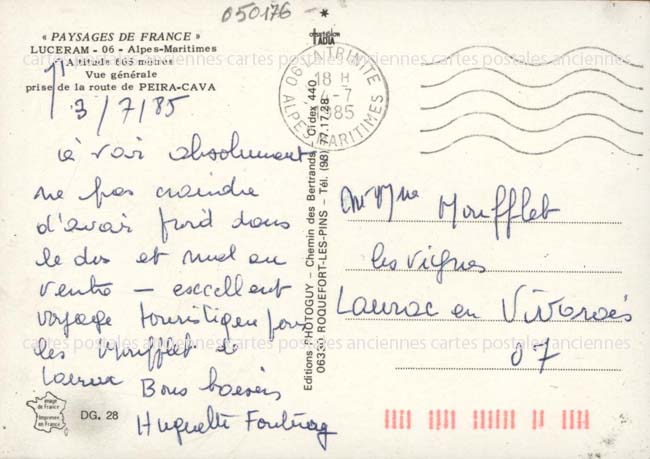 050176
« PAYSAGES DE FRANCE »
LUCERAM - 06 - Alpes-Maritimes
Altitude 665 mètres
Vue générale
prise de la route de PEIRA-CAVA
3/7/85
à voir absolument
ne pas craindre
d'avoir froid dans
le dos et mal au
ventre — excellent
voyage touristique pour
les Moufflet de
Laurac Bons baisers
Huguette
Image
de France
Imprimée
en France
DG. 28
Editions PHOTOGUY - Chemin des Bertrands - Cidex 440
06330 ROQUEFORT-LES-PINS - Tél. (93) 77.17.28
LADIA
06 LA TRINITE
18 H
4-7
1985
ALPES MARITIMES
Mr Mme Moufflet
les vignes
Laurac en Vivarais
07
cartes postales anciennes cartes postales anciennes cartes postales anciennes
cartes postales anciennes cartes postales anciennes cartes postales anciennes